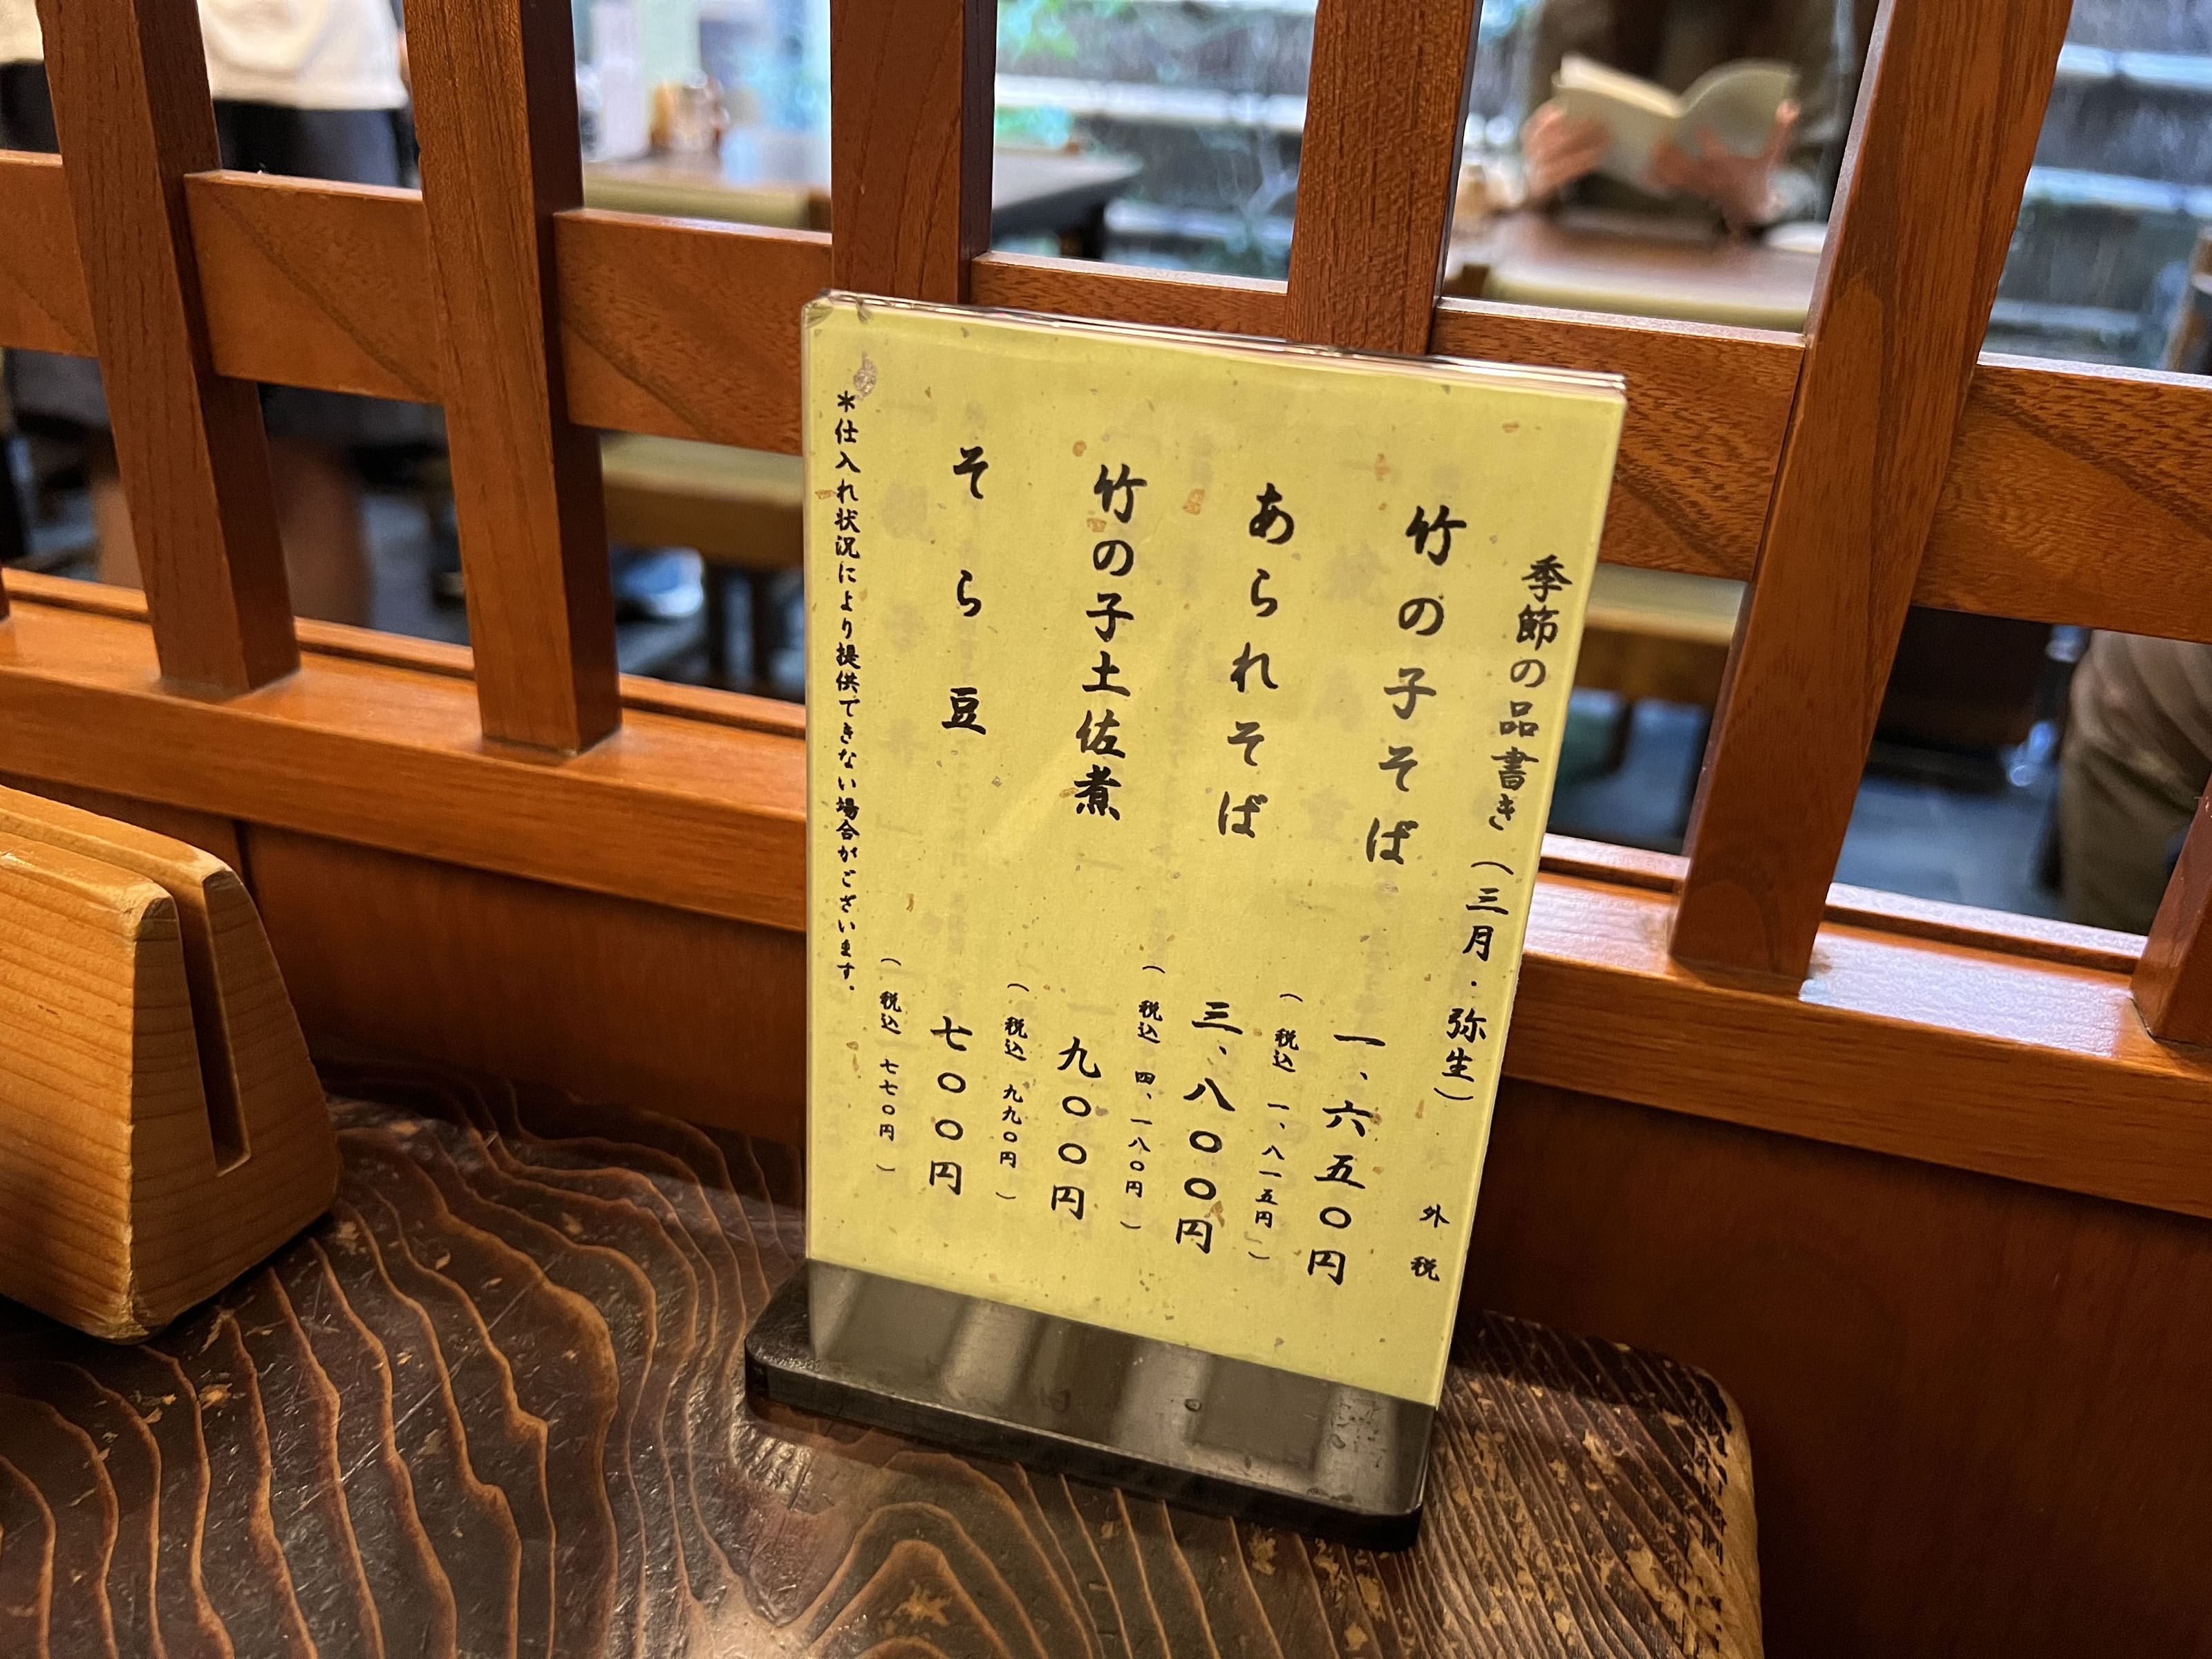 季節の品書き（三月・弥生） 外税
竹の子そば 一、六五〇円
（税込 一、八一五円）
あられそば 三、八〇〇円
（税込 四、一八〇円）
竹の子土佐煮 九〇〇円
（税込 九九〇円）
そら豆 七〇〇円
（税込 七七〇円）
＊仕入れ状況により提供できない場合がございます。